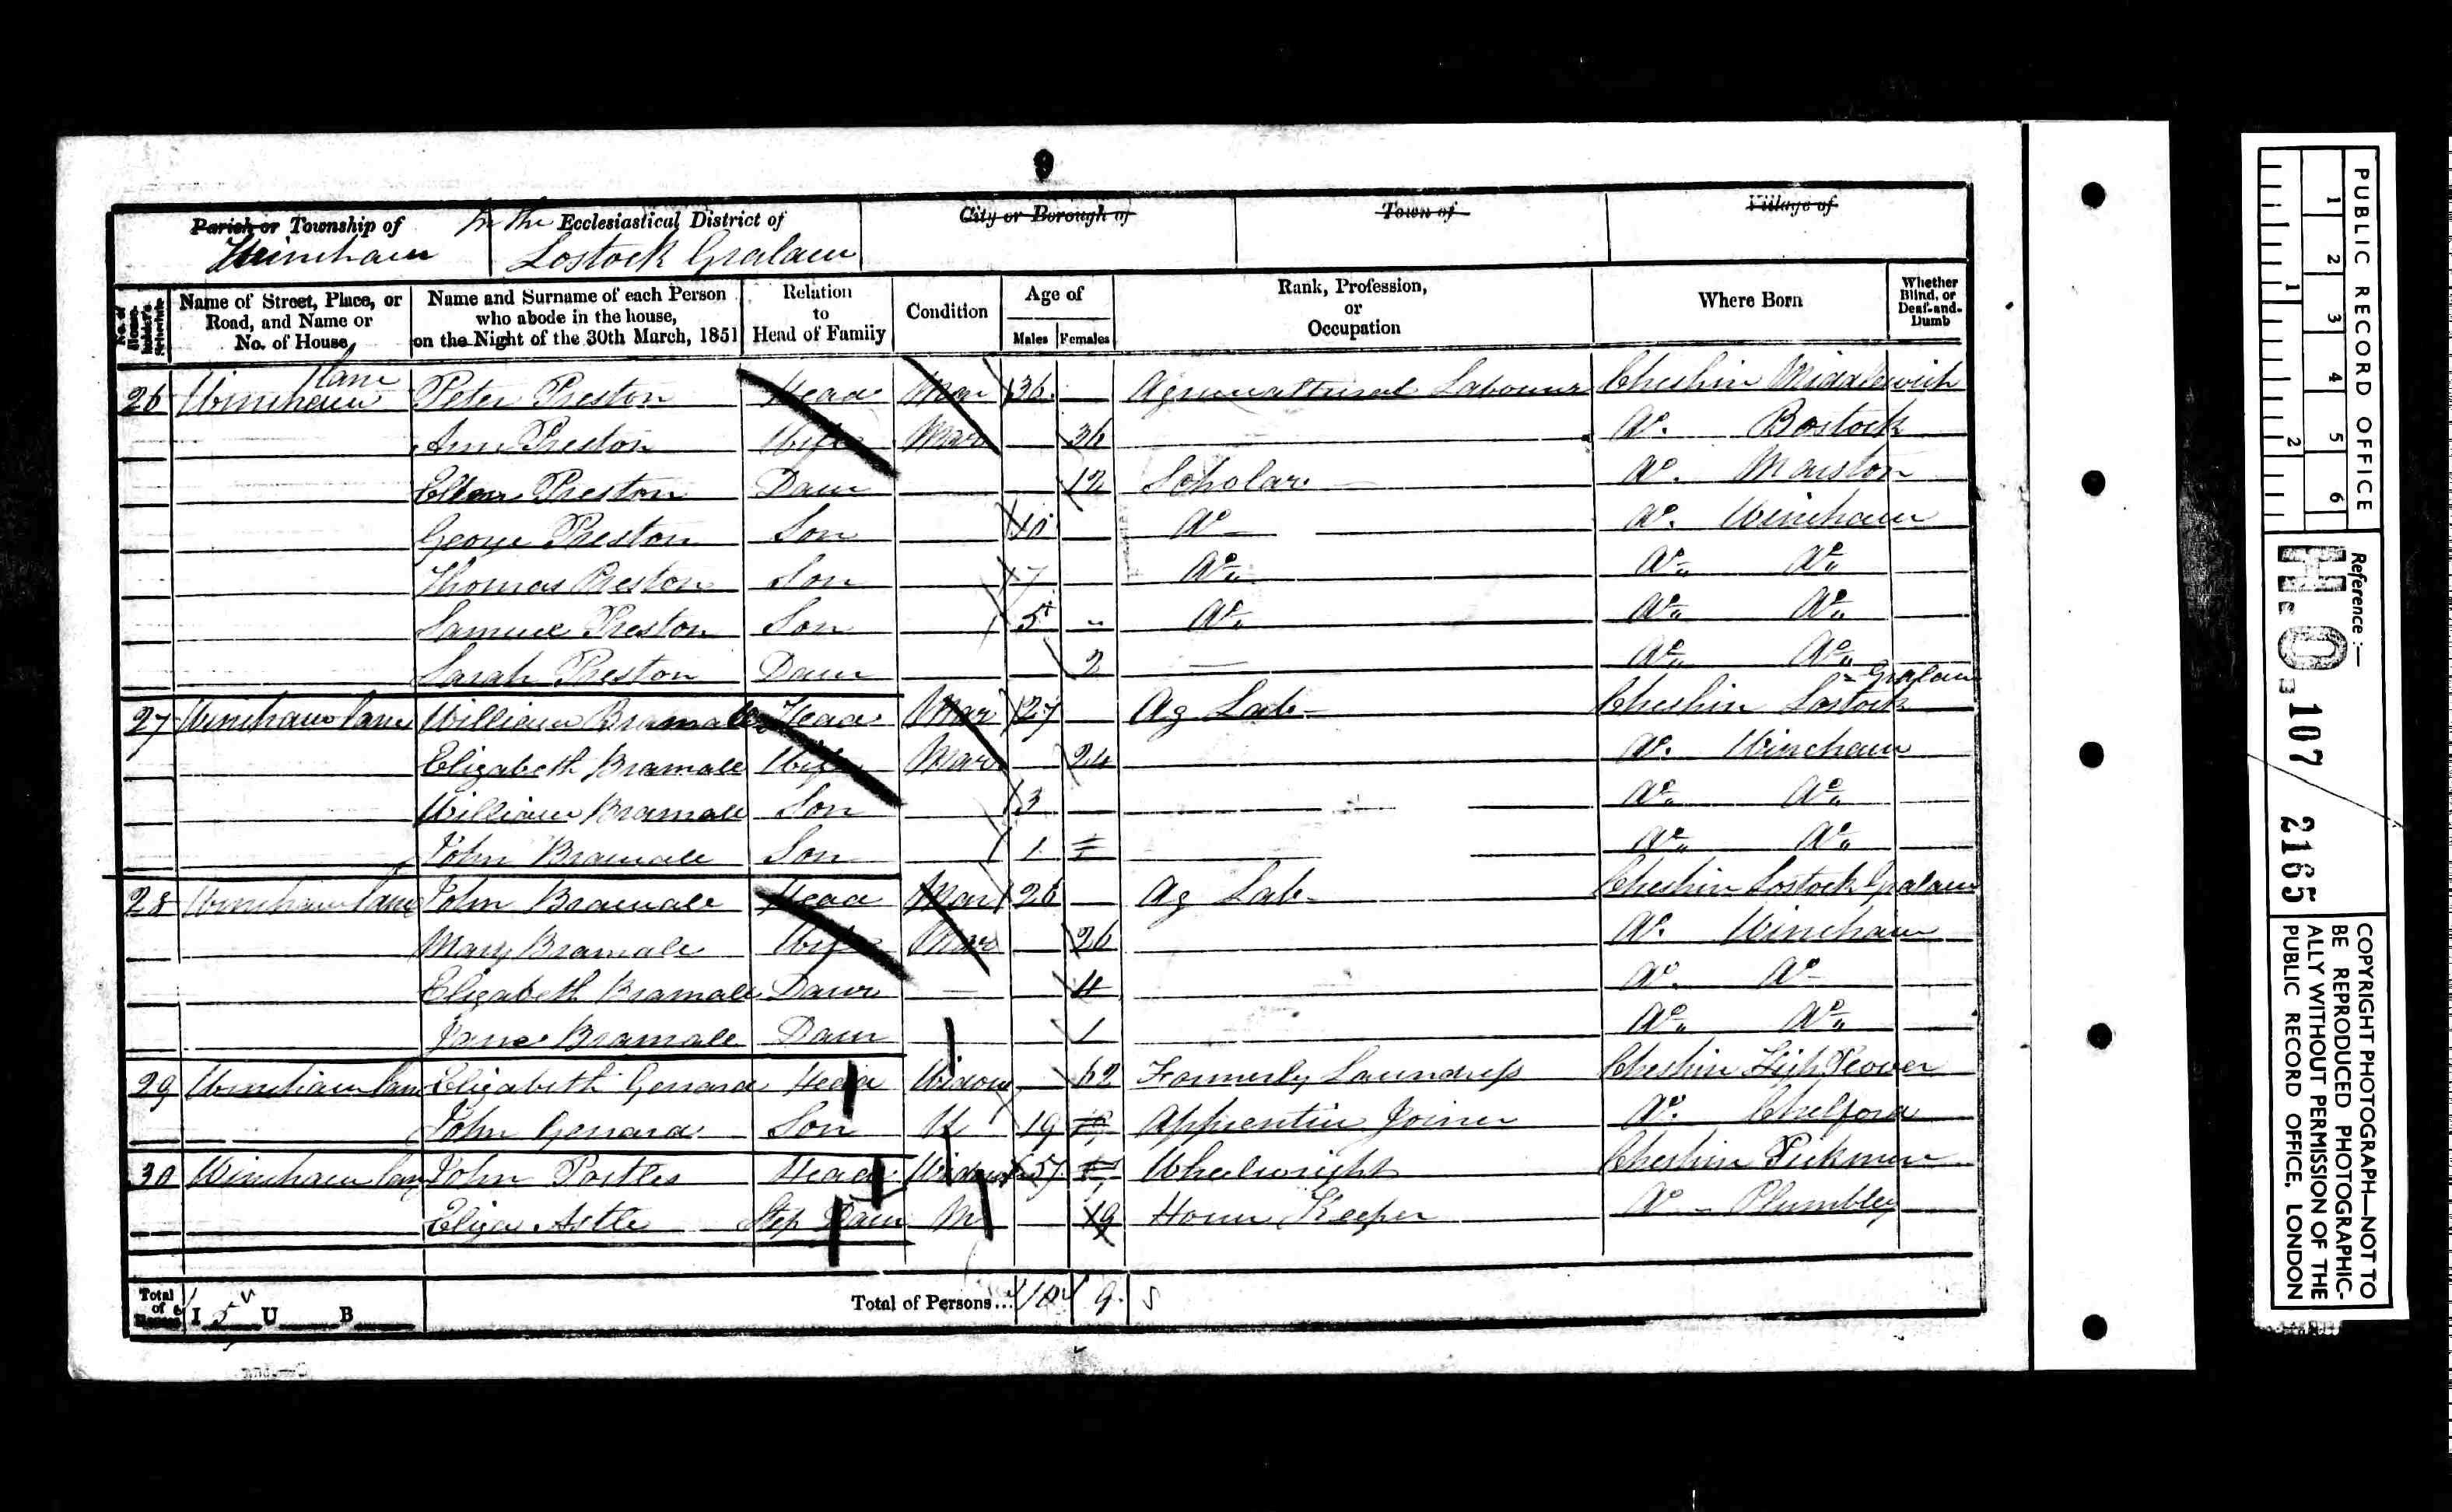 9
Parish or Township of
Wincham
In the Ecclesiastical District of
Lostock Gralam
City or Borough of
Town of
Village of
No. of House-holder's Schedule
Name of Street, Place, or Road, and Name or No. of House
Name and Surname of each Person who abode in the house, on the Night of the 30th March, 1851
Relation to Head of Family
Condition
Age of
Males Females
Rank, Profession, or Occupation
Where Born
Whether Blind, or Deaf-and-Dumb
26 Wincham lane Peter Preston Head Mar 36 Agricultural Labourer Cheshire Middlewich
Ann Preston Wife Mar 36 Do. Bostock
Ellen Preston Daur 12 Scholar Do. Marston
George Preston Son 10 Do Do. Wincham
Thomas Preston Son 7 Do Do Do
Samuel Preston Son 5 Do Do Do
Sarah Preston Daur 2 Do Do
27 Wincham lane William Bramall Head Mar 27 Ag Lab Cheshire Lostock Gralam
Elizabeth Bramall Wife Mar 24 Do. Wincham
William Bramall Son 3 Do Do
John Bramall Son 1 Do Do
28 Wincham lane John Bramall Head Mar 26 Ag Lab Cheshire Lostock Gralam
Mary Bramall Wife Mar 26 Do. Wincham
Elizabeth Bramall Daur 4 Do. Do
Jane Bramall Daur 1 Do Do
29 Wincham lane Elizabeth Gerrard Head Widow 62 Formerly Laundress Cheshire High Peover
John Gerrard Son U 19 Apprentice Joiner Do. Chelford
30 Wincham lane John Postles Head Widower 57 Wheelwright Cheshire Pickmere
Eliza Astle Step Daur M 19 House Keeper Do Plumbley
Total of Houses I 5 U B
Total of Persons... 10 9
PUBLIC RECORD OFFICE
1 2 3 4 5 6
1 2
Reference :—
H.O. 107 2165
COPYRIGHT PHOTOGRAPH—NOT TO
BE REPRODUCED PHOTOGRAPHIC-
ALLY WITHOUT PERMISSION OF THE
PUBLIC RECORD OFFICE, LONDON